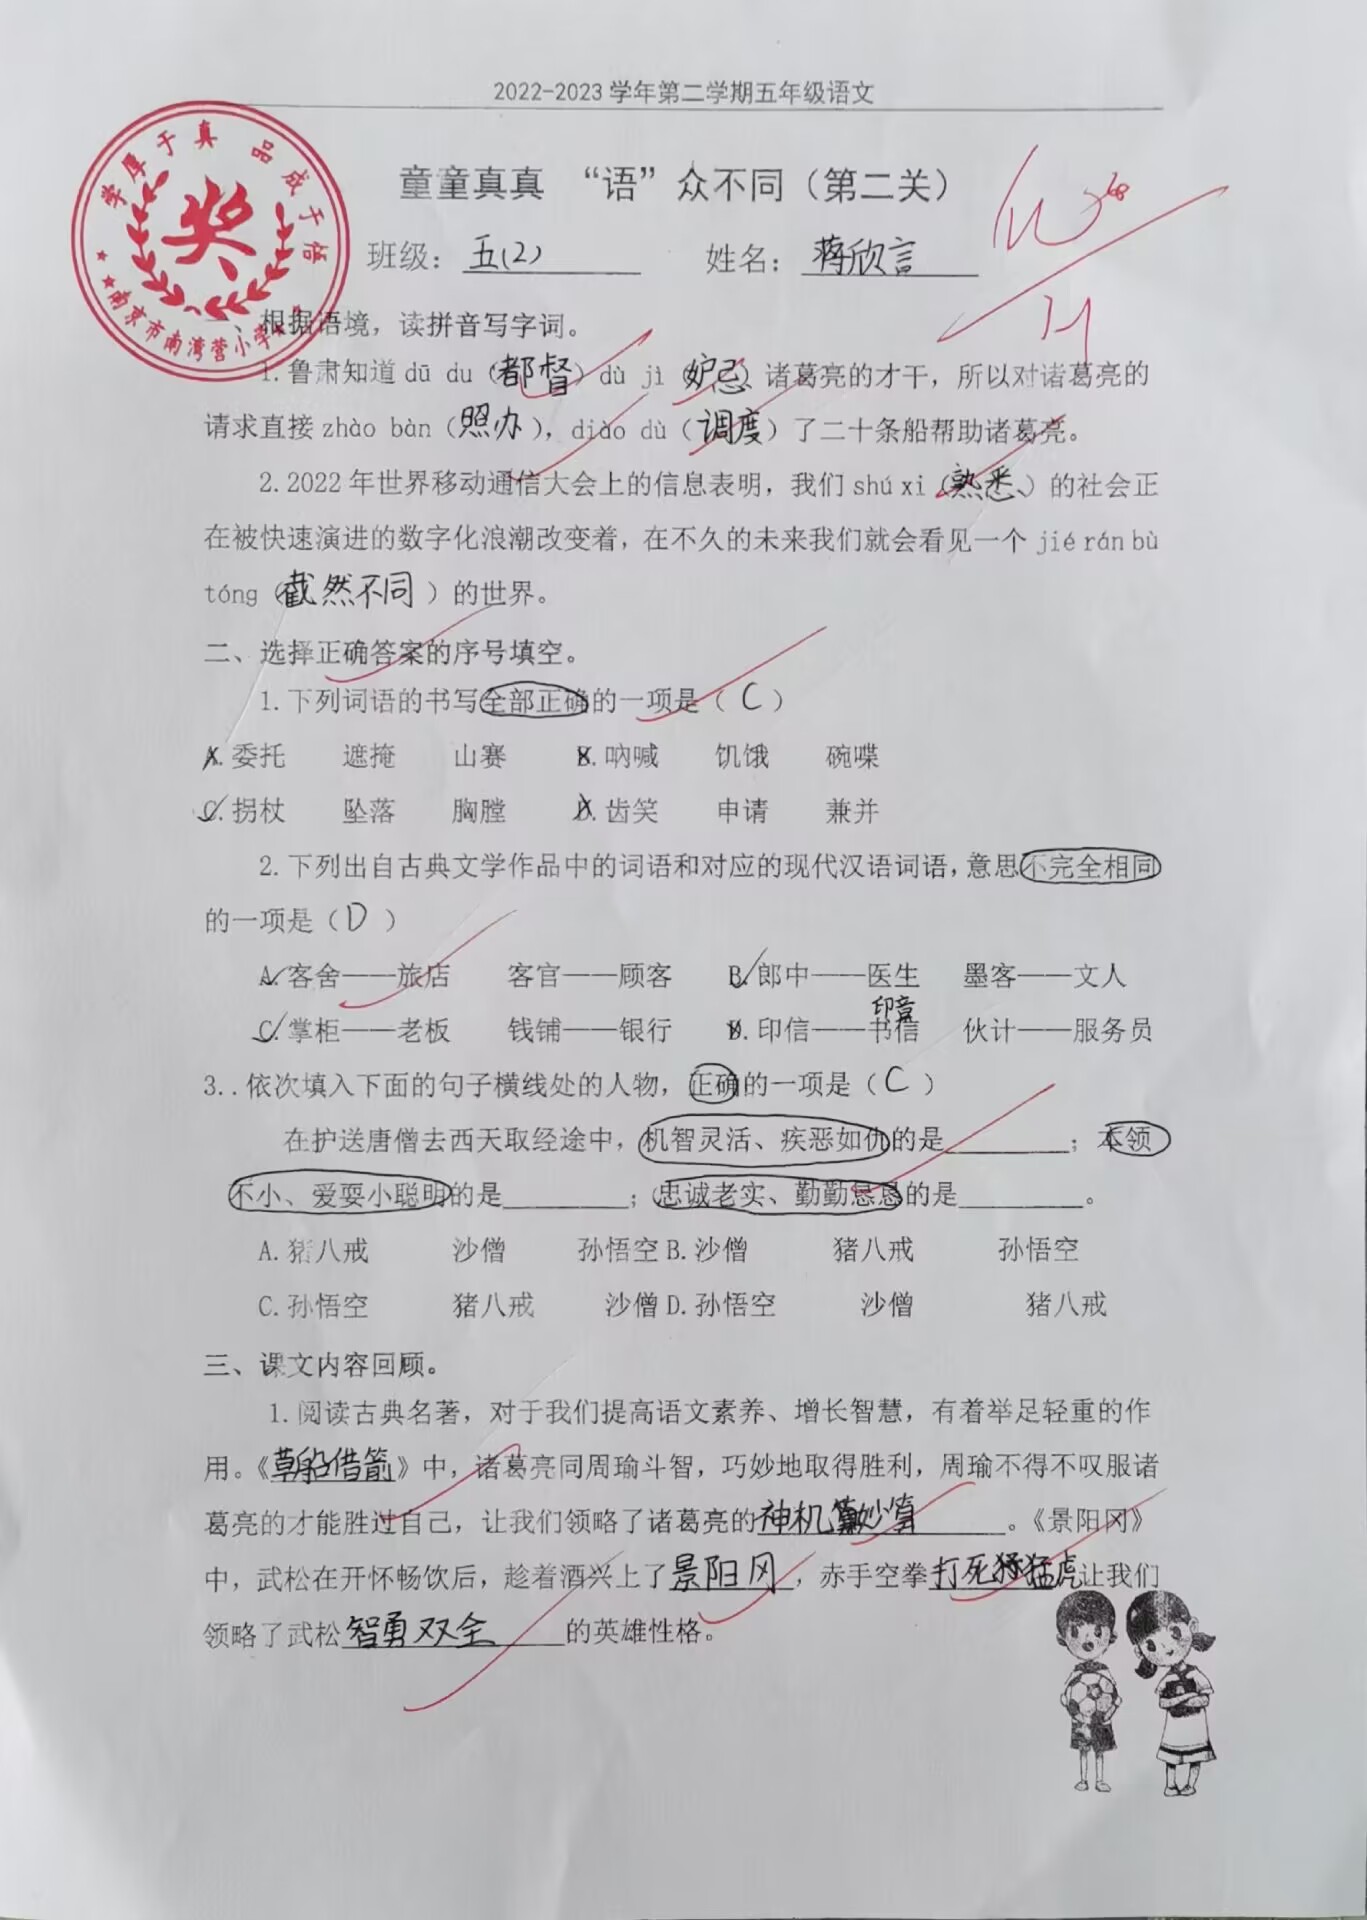 2022-2023学年第二学期五年级语文
学厚于真 品成于悟
奖
南京市南湾营小学
童童真真 “语”众不同（第二关）
班级：五(2) 姓名：蒋欣言
一、根据语境，读拼音写字词。
1.鲁肃知道 dū du（都督）dù jì（妒忌）诸葛亮的才干，所以对诸葛亮的
请求直接 zhào bàn（照办），diào dù（调度）了二十条船帮助诸葛亮。
2.2022年世界移动通信大会上的信息表明，我们 shú xi（熟悉）的社会正
在被快速演进的数字化浪潮改变着，在不久的未来我们就会看见一个 jié rán bù
tóng（截然不同）的世界。
二、选择正确答案的序号填空。
1.下列词语的书写全部正确的一项是（C）
A.委托 遮掩 山赛 B.呐喊 饥饿 碗喋
C.拐杖 坠落 胸膛 D.齿笑 申请 兼并
2.下列出自古典文学作品中的词语和对应的现代汉语词语，意思不完全相同
的一项是（D）
A.客舍——旅店 客官——顾客 B.郎中——医生 墨客——文人
印章
C.掌柜——老板 钱铺——银行 D.印信——书信 伙计——服务员
3..依次填入下面的句子横线处的人物，正确的一项是（C）
在护送唐僧去西天取经途中，机智灵活、疾恶如仇的是_________；本领
不小、爱耍小聪明的是_________；忠诚老实、勤勤恳恳的是_________。
A.猪八戒 沙僧 孙悟空 B.沙僧 猪八戒 孙悟空
C.孙悟空 猪八戒 沙僧 D.孙悟空 沙僧 猪八戒
三、课文内容回顾。
1.阅读古典名著，对于我们提高语文素养、增长智慧，有着举足轻重的作
用。《草船借箭》中，诸葛亮同周瑜斗智，巧妙地取得胜利，周瑜不得不叹服诸
葛亮的才能胜过自己，让我们领略了诸葛亮的神机妙算。《景阳冈》
中，武松在开怀畅饮后，趁着酒兴上了景阳冈，赤手空拳打死猛虎让我们
领略了武松智勇双全的英雄性格。